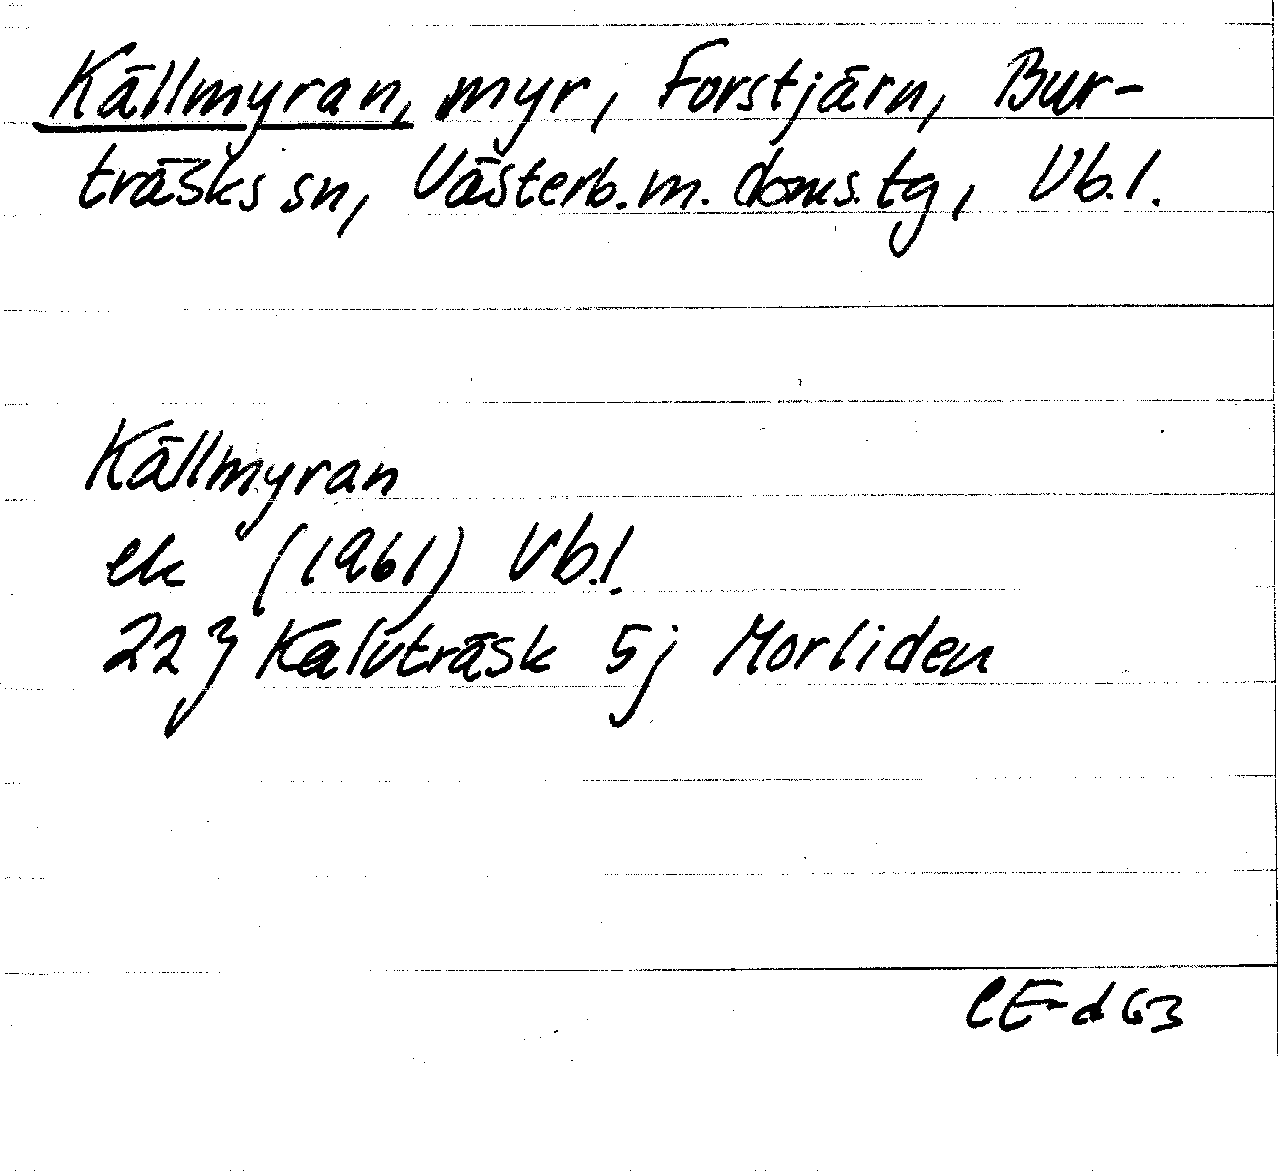 Källmyran, myr, Forstjärn, Bur-
träsks sn, Västerb. m. doms. tg, Vb. l.
Källmyran
ek (1961) Vb. l.
22 J Kalvträsk 5j Morliden
CE-d 63